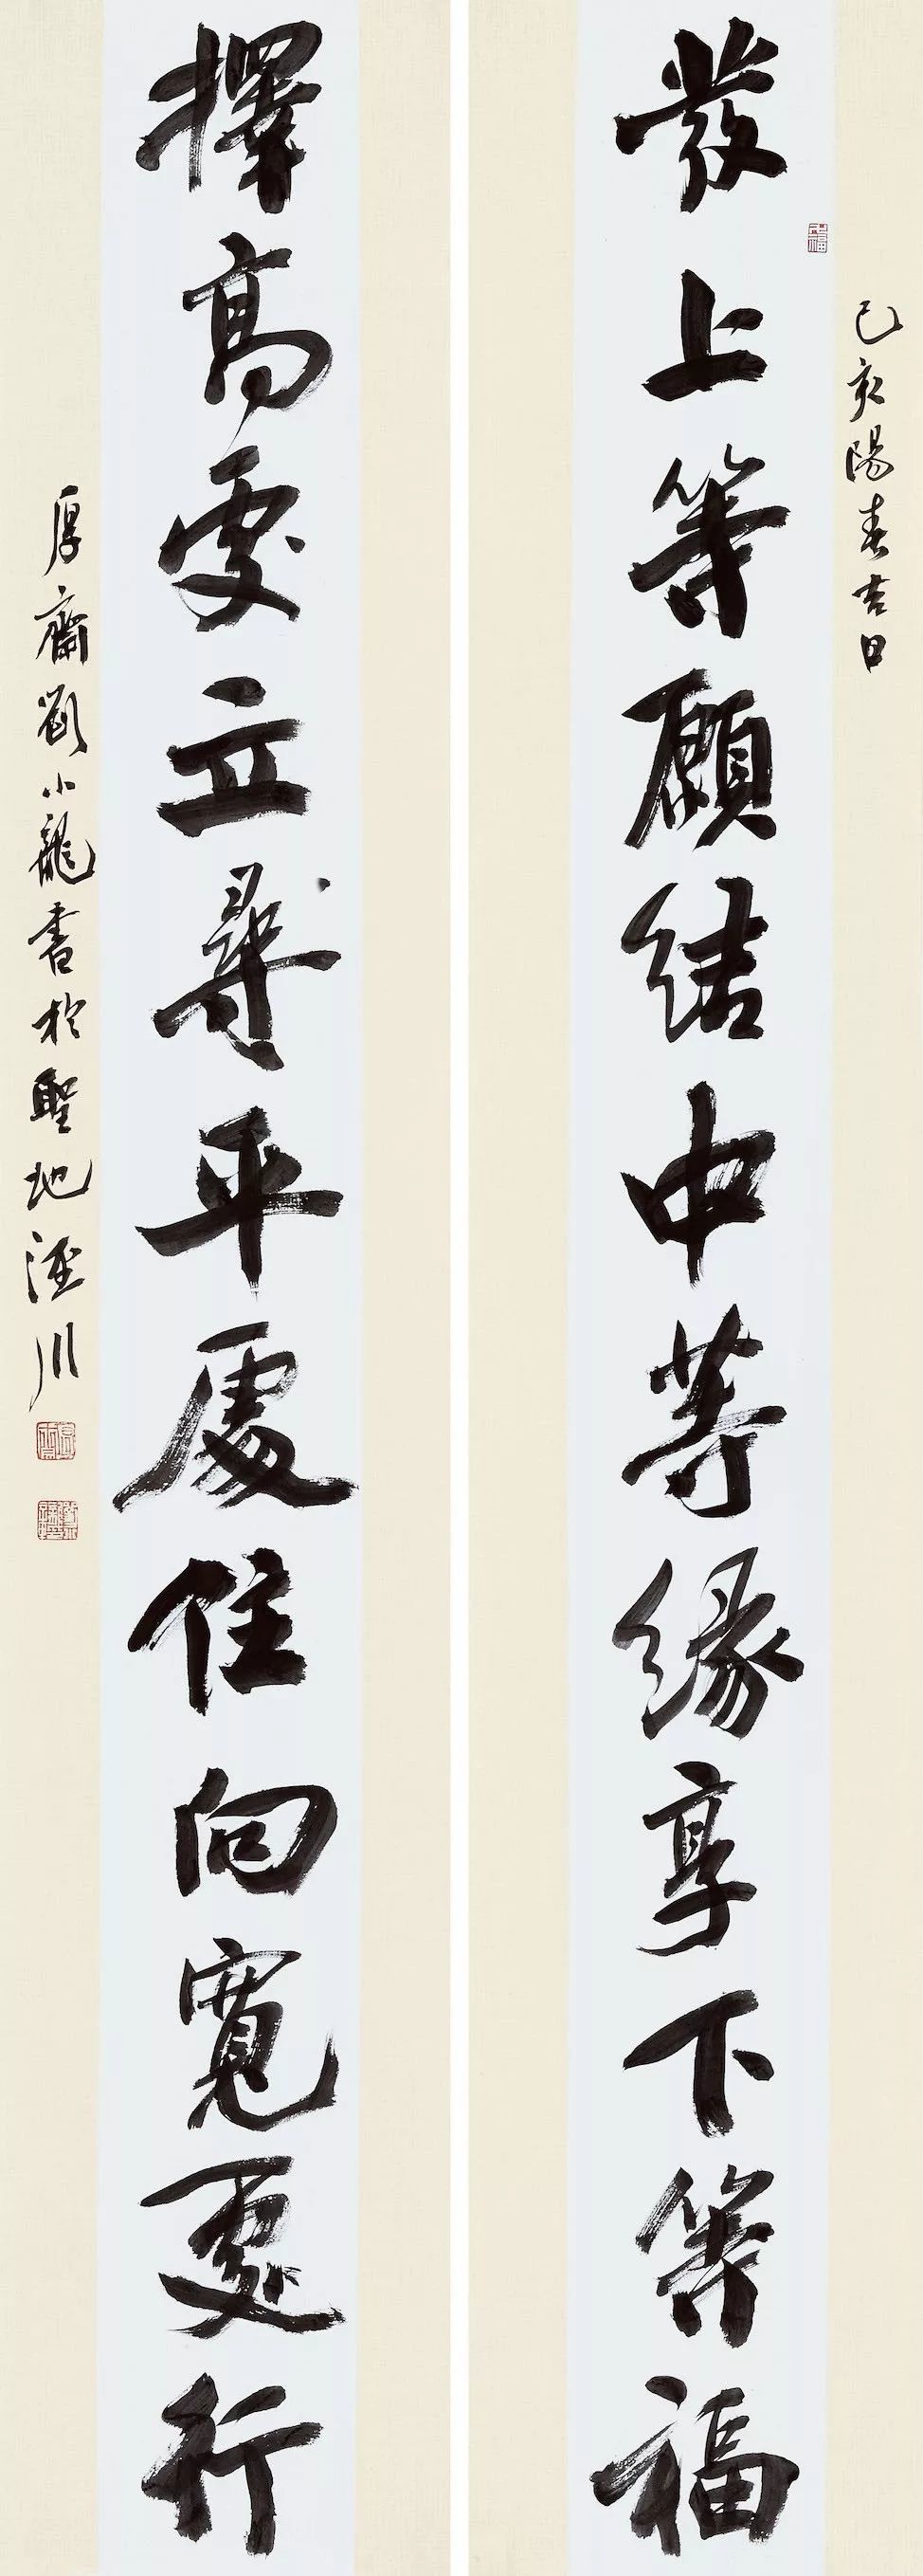 己亥陽春吉日
發上等願結中等緣享下等福
擇高處立尋平處住向寬處行
厚齋劉小龍書於聖地涇川